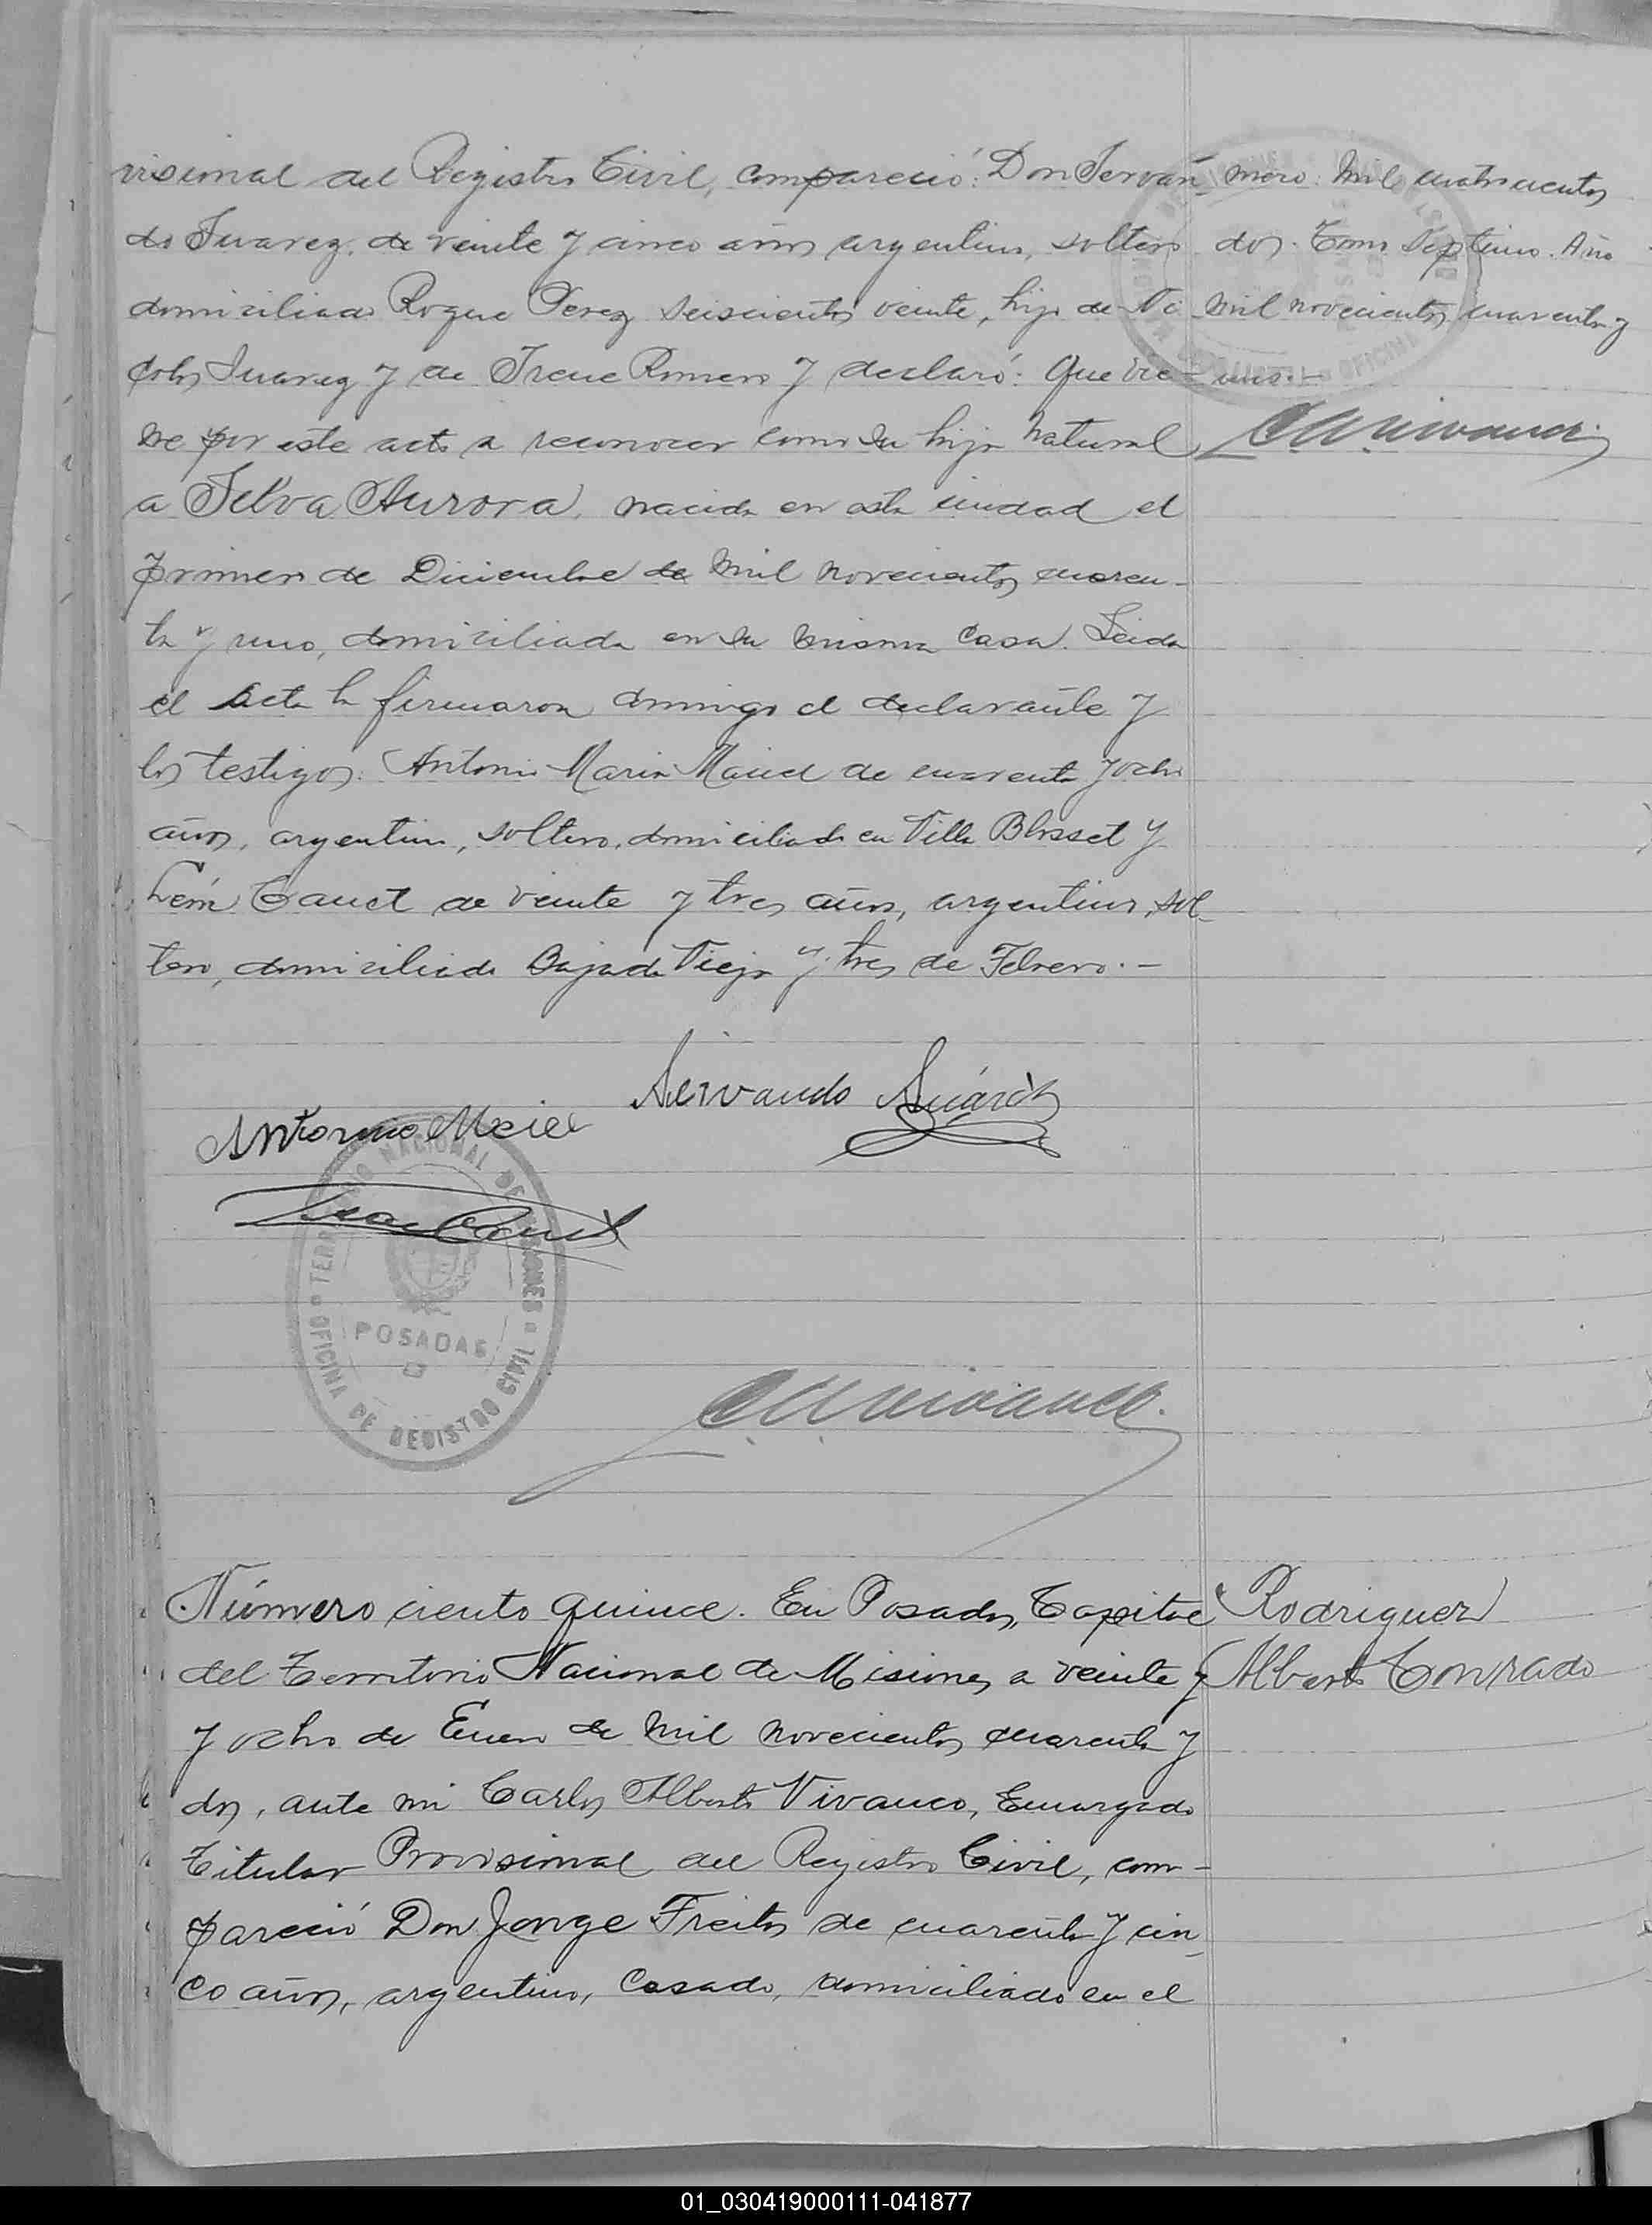 visional del Registro Civil, compareció: Don Servan-
do Suarez, de veinte y cinco años argentino, soltero
domiciliado Roque Perez seiscientos veinte, hijo de Ni
colas Suarez y de Irene Romero y declaró: Que vie-
ne por este acto a reconocer como su hija natural
a Selva Aurora, nacida en esta ciudad el
primero de Diciembre de mil novecientos cuaren-
ta y uno, domiciliada en su misma casa. Leida
el acta la firmaron conmigo el declarante y
los testigos: Antonio Maria Maciel de cuarenta y ocho
años, argentino, soltero, domiciliado en Villa Blosset y
Canet de veinte y tres años, argentino, sol-
tero, domiciliado Bajada Vieja y tres de Febrero.-
mero: mil cuatrocientos
dos. Tomo Septimo. Año
mil novecientos cuarenta y
uno.-
Servando Suárez
Antonio Maciel
TERRITORIO NACIONAL DE MISIONES
POSADAS
OFICINA DE REGISTRO CIVIL
Número ciento quince. En Posadas, Capital
del Territorio Nacional de Misiones, a veinte y
y ocho de Enero de mil novecientos cuarenta y
dos, ante mi Carlos Alberto Vivanco, Encargado
Titular Provisional del Registro Civil, com-
pareció Don Jorge Freitas de cuarenta y cin-
co años, argentino, casado, domiciliado en el
Rodriguez
Alberto Conrado
01_030419000111-041877